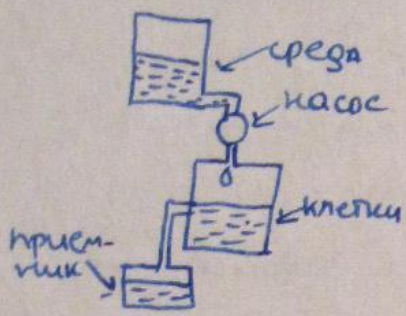 среда
насос
клетки
прием-
ник